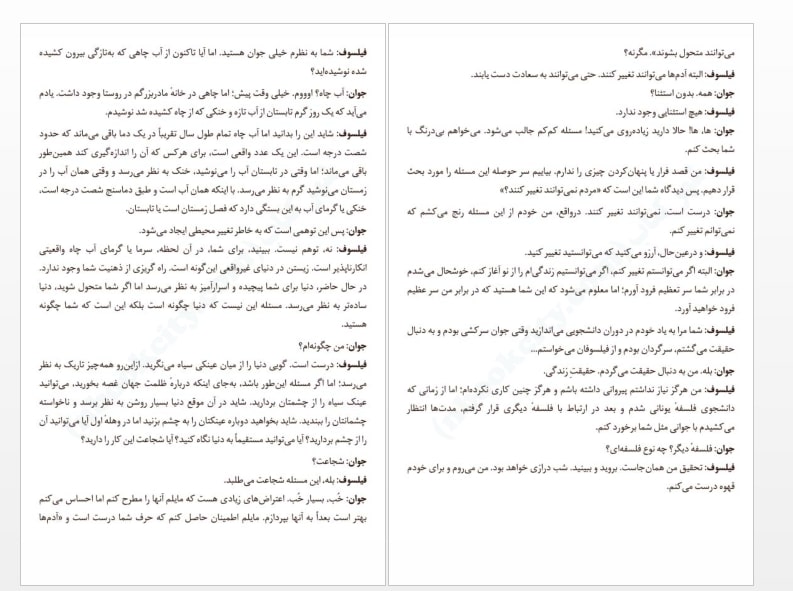 فیلسوف: شما به نظرم خیلی جوان هستید. اما آیا تاکنون از آب چاهی که به‌تازگی بیرون کشیده
شده نوشیده‌اید؟
جوان: آب چاه؟ اوووم. خیلی وقت پیش؛ اما چاهی در خانهٔ مادربزرگم در روستا وجود داشت. یادم
می‌آید که یک روز گرم تابستان از آب تازه و خنکی که از چاه کشیده شد نوشیدم.
فیلسوف: شاید این را بدانید اما آب چاه تمام طول سال تقریباً در یک دما باقی می‌ماند که حدود
شصت درجه است. این یک عدد واقعی است، برای هرکس که آن را اندازه‌گیری کند همین‌طور
باقی می‌ماند؛ اما وقتی در تابستان آب را می‌نوشید، خنک به نظر می‌رسد و وقتی همان آب را در
زمستان می‌نوشید گرم به نظر می‌رسد. با اینکه همان آب است و طبق دماسنج شصت درجه است،
خنکی یا گرمای آب به این بستگی دارد که فصل زمستان است یا تابستان.
جوان: پس این توهمی است که به خاطر تغییر محیطی ایجاد می‌شود.
فیلسوف: نه، توهم نیست. ببینید، برای شما، در آن لحظه، سرما یا گرمای آب چاه واقعیتی
انکارناپذیر است. زیستن در دنیای غیرواقعی این‌گونه است. راه گریزی از ذهنیت شما وجود ندارد.
در حال حاضر، دنیا برای شما پیچیده و اسرارآمیز به نظر می‌رسد اما اگر شما متحول شوید، دنیا
ساده‌تر به نظر می‌رسد. مسئله این نیست که دنیا چگونه است بلکه این است که شما چگونه
هستید.
جوان: من چگونه‌ام؟
فیلسوف: درست است. گویی دنیا را از میان عینکی سیاه می‌نگرید. ازاین‌رو همه‌چیز تاریک به نظر
می‌رسد؛ اما اگر مسئله این‌طور باشد، به‌جای اینکه دربارهٔ ظلمت جهان غصه بخورید، می‌توانید
عینک سیاه را از چشمتان بردارید. شاید در آن موقع دنیا بسیار روشن به نظر برسد و ناخواسته
چشمانتان را ببندید. شاید بخواهید دوباره عینکتان را به چشم بزنید اما در وهلهٔ اول آیا می‌توانید آن
را از چشم بردارید؟ آیا می‌توانید مستقیماً به دنیا نگاه کنید؟ آیا شجاعت این کار را دارید؟
جوان: شجاعت؟
فیلسوف: بله، این مسئله شجاعت می‌طلبد.
جوان: خُب، بسیار خُب. اعتراض‌های زیادی هست که مایلم آنها را مطرح کنم اما احساس می‌کنم
بهتر است بعداً به آنها بپردازم. مایلم اطمینان حاصل کنم که حرف شما درست است و «آدم‌ها
می‌توانند متحول بشوند». مگرنه؟
فیلسوف: البته آدم‌ها می‌توانند تغییر کنند. حتی می‌توانند به سعادت دست یابند.
جوان: همه. بدون استثنا؟
فیلسوف: هیچ استثنایی وجود ندارد.
جوان: ها، ها! حالا دارید زیاده‌روی می‌کنید! مسئله کم‌کم جالب می‌شود. می‌خواهم بی‌درنگ با
شما بحث کنم.
فیلسوف: من قصد فرار یا پنهان‌کردن چیزی را ندارم. بیاییم سر حوصله این مسئله را مورد بحث
قرار دهیم. پس دیدگاه شما این است که «مردم نمی‌توانند تغییر کنند؟»
جوان: درست است. نمی‌توانند تغییر کنند. درواقع، من خودم از این مسئله رنج می‌کشم که
نمی‌توانم تغییر کنم.
فیلسوف: و درعین‌حال، آرزو می‌کنید که می‌توانستید تغییر کنید.
جوان: البته اگر می‌توانستم تغییر کنم، اگر می‌توانستیم زندگی‌ام را از نو آغاز کنم، خوشحال می‌شدم
در برابر شما سر تعظیم فرود آورم؛ اما معلوم می‌شود که این شما هستید که در برابر من سر عظیم
فرود خواهید آورد.
فیلسوف: شما مرا به یاد خودم در دوران دانشجویی می‌اندازید وقتی جوان سرکشی بودم و به دنبال
حقیقت می‌گشتم، سرگردان بودم و از فیلسوفان می‌خواستم...
جوان: بله. من به دنبال حقیقت می‌گردم. حقیقتِ زندگی.
فیلسوف: من هرگز نیاز نداشتم پیروانی داشته باشم و هرگز چنین کاری نکرده‌ام؛ اما از زمانی که
دانشجوی فلسفهٔ یونانی شدم و بعد در ارتباط با فلسفهٔ دیگری قرار گرفتم، مدت‌ها انتظار
می‌کشیدم با جوانی مثل شما برخورد کنم.
جوان: فلسفهٔ دیگر؟ چه نوع فلسفه‌ای؟
فیلسوف: تحقیق من همان‌جاست. بروید و ببینید. شب درازی خواهد بود. من می‌روم و برای خودم
قهوه درست می‌کنم.